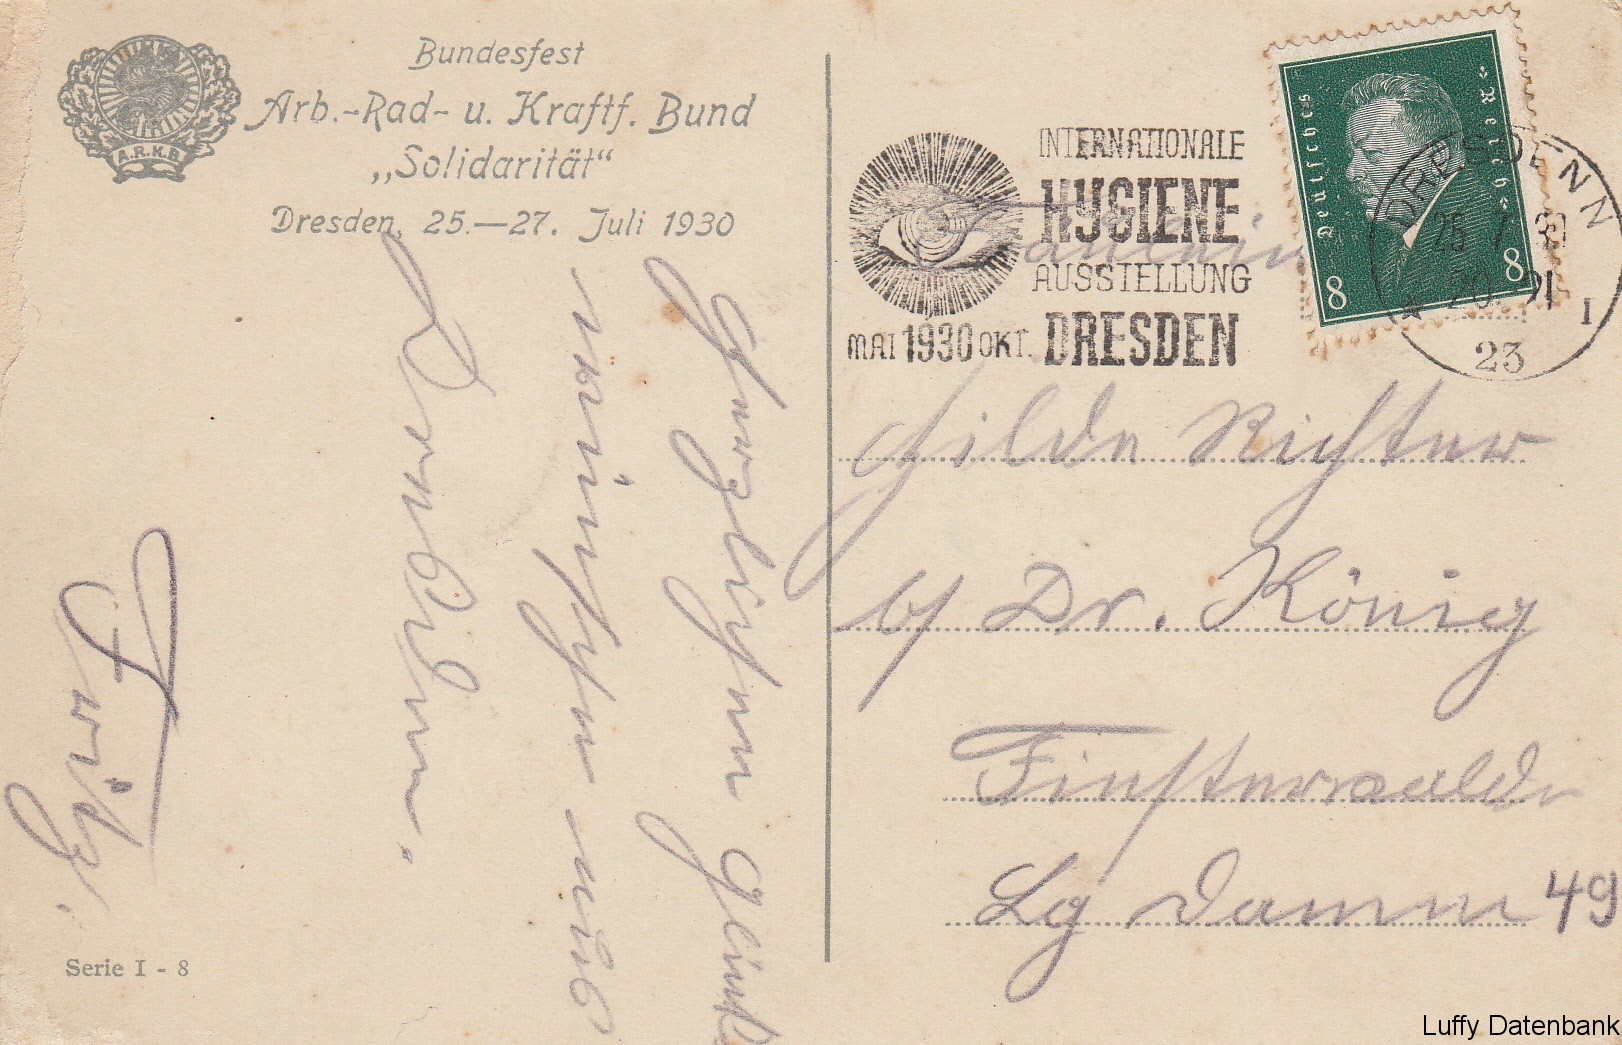 Bundesfest
Arb.-Rad- u. Kraftf. Bund
„Solidarität“
Dresden, 25.—27. Juli 1930
A.R.K.B.
Herzlichen
wünschen aus
Dresden.
Fritz.
Serie I - 8
INTERNATIONALE
HYGIENE
AUSSTELLUNG
MAI 1930 OKT. DRESDEN
Deutsches Reich
8 8
DRESDEN N
25 7 30
20 21
I
23
Fräulein
Hilde Richter
b/ Dr. König
Finsterwalde
Lg Damm 49
Luffy Datenbank